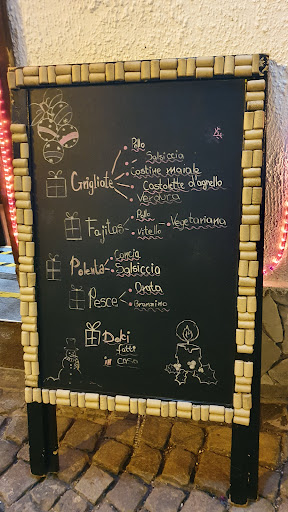 Pollo
Salsiccia
Grigliate Costine maiale
Costolette d'agnello
Verdura
Fajitas Pollo Vegetariana
Vitello
Polenta Concia
Salsiccia
Pesce Orata
Branzino
Dolci
fatti
in casa